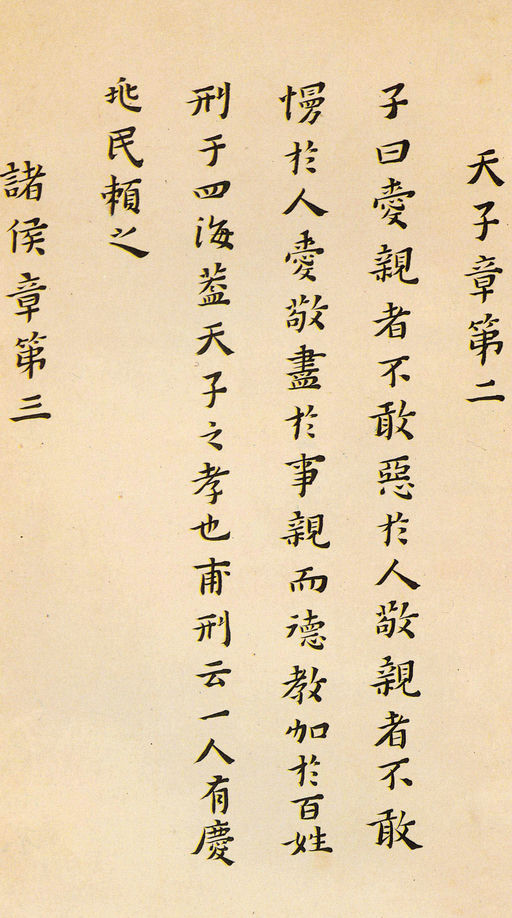 天子章第二
子曰愛親者不敢惡於人敬親者不敢
慢於人愛敬盡於事親而德教加於百姓
刑于四海蓋天子之孝也甫刑云一人有慶
兆民賴之
諸侯章第三